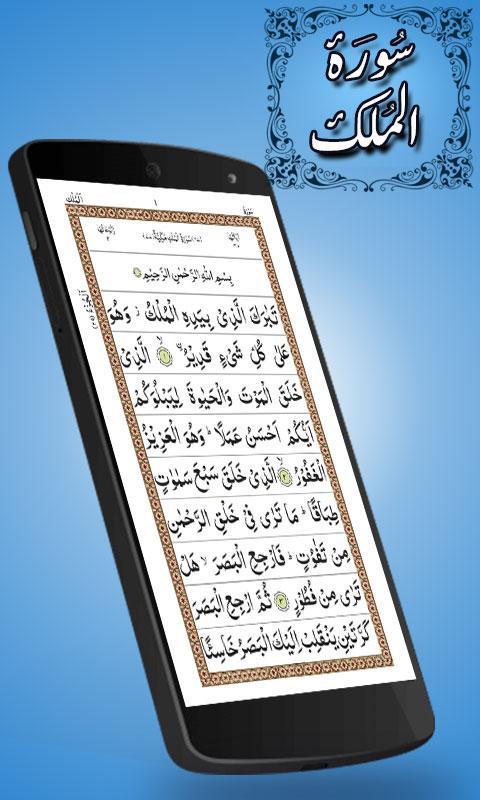 سُورَۃُ
الْمُلْك
اَلْمُلْك
١
بِسْمِ اللّٰهِ الرَّحْمٰنِ الرَّحِيْمِ
تَبٰرَكَ الَّذِيْ بِيَدِهِ الْمُلْكُ ز وَهُوَ
عَلٰى كُلِّ شَيْءٍ قَدِيْرُ ۙ ﴿١﴾ الَّذِيْ
خَلَقَ الْمَوْتَ وَالْحَيٰوةَ لِيَبْلُوَكُمْ
اَيُّكُمْ اَحْسَنُ عَمَلًا ؕ وَهُوَ الْعَزِيْزُ
الْغَفُوْرُ ۙ ﴿٢﴾ الَّذِيْ خَلَقَ سَبْعَ سَمٰوٰتٍ
طِبَاقًا ؕ مَا تَرٰى فِيْ خَلْقِ الرَّحْمٰنِ
مِنْ تَفٰوُتٍ ؕ فَارْجِعِ الْبَصَرَ ۙ هَلْ
تَرٰى مِنْ فُطُوْرٍ ﴿٣﴾ ثُمَّ ارْجِعِ الْبَصَرَ
كَرَّتَيْنِ يَنْقَلِبْ اِلَيْكَ الْبَصَرُ خَاسِئًا